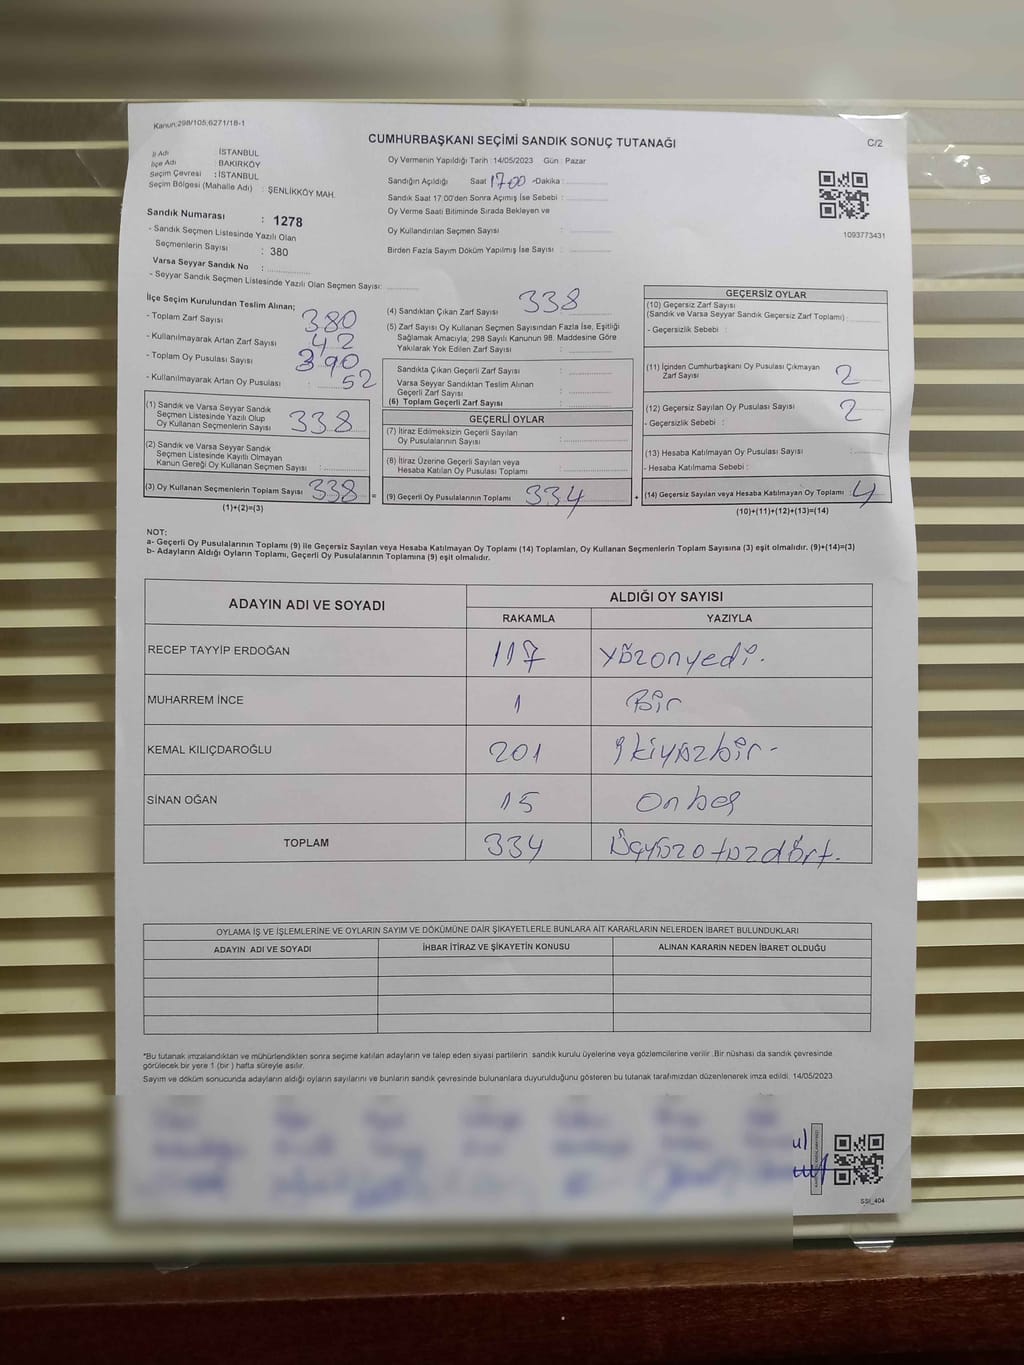 Kanun:298/105,6271/18-1
CUMHURBAŞKANI SEÇİMİ SANDIK SONUÇ TUTANAĞI
C/2
İl Adı : İSTANBUL
İlçe Adı : BAKIRKÖY
Seçim Çevresi : İSTANBUL
Seçim Bölgesi (Mahalle Adı) : ŞENLİKKÖY MAH.
Oy Vermenin Yapıldığı Tarih : 14/05/2023 Gün : Pazar
Sandığın Açıldığı Saat 17:00 -Dakika :
Sandık Saat 17:00'den Sonra Açımış İse Sebebi :
Oy Verme Saati Bitiminde Sırada Bekleyen ve
Oy Kullandırılan Seçmen Sayısı :
Birden Fazla Sayım Döküm Yapılmış İse Sayısı :
1093773431
Sandık Numarası : 1278
- Sandık Seçmen Listesinde Yazılı Olan
Seçmenlerin Sayısı : 380
Varsa Seyyar Sandık No :
- Seyyar Sandık Seçmen Listesinde Yazılı Olan Seçmen Sayısı:
İlçe Seçim Kurulundan Teslim Alınan;
- Toplam Zarf Sayısı 380
- Kullanılmayarak Artan Zarf Sayısı 42
- Toplam Oy Pusulası Sayısı 390
- Kullanılmayarak Artan Oy Pusulası 52
(1) Sandık ve Varsa Seyyar Sandık
Seçmen Listesinde Yazılı Olup
Oy Kullanan Seçmenlerin Sayısı 338
(2) Sandık ve Varsa Seyyar Sandık
Seçmen Listesinde Kayıtlı Olmayan
Kanun Gereği Oy Kullanan Seçmen Sayısı :
(3) Oy Kullanan Seçmenlerin Toplam Sayısı 338 =
(1)+(2)=(3)
(4) Sandıktan Çıkan Zarf Sayısı 338
(5) Zarf Sayısı Oy Kullanan Seçmen Sayısından Fazla İse, Eşitliği
Sağlamak Amacıyla, 298 Sayılı Kanunun 98. Maddesine Göre
Yakılarak Yok Edilen Zarf Sayısı :
Sandıkta Çıkan Geçerli Zarf Sayısı :
Varsa Seyyar Sandıktan Teslim Alınan
Geçerli Zarf Sayısı :
(6) Toplam Geçerli Zarf Sayısı :
GEÇERLİ OYLAR
(7) İtiraz Edilmeksizin Geçerli Sayılan
Oy Pusulalarının Sayısı :
(8) İtiraz Üzerine Geçerli Sayılan veya
Hesaba Katılan Oy Pusulası Toplamı :
(9) Geçerli Oy Pusulalarının Toplamı : 334 +
GEÇERSİZ OYLAR
(10) Geçersiz Zarf Sayısı
(Sandık ve Varsa Seyyar Sandık Geçersiz Zarf Toplamı) :
- Geçersizlik Sebebi :
(11) İçinden Cumhurbaşkanı Oy Pusulası Çıkmayan
Zarf Sayısı 2
(12) Geçersiz Sayılan Oy Pusulası Sayısı : 2
- Geçersizlik Sebebi :
(13) Hesaba Katılmayan Oy Pusulası Sayısı :
- Hesaba Katılmama Sebebi :
(14) Geçersiz Sayılan veya Hesaba Katılmayan Oy Toplamı : 4
(10)+(11)+(12)+(13)=(14)
NOT:
a- Geçerli Oy Pusulalarının Toplamı (9) ile Geçersiz Sayılan veya Hesaba Katılmayan Oy Toplamı (14) Toplamları, Oy Kullanan Seçmenlerin Toplam Sayısına (3) eşit olmalıdır. (9)+(14)=(3)
b- Adayların Aldığı Oyların Toplamı, Geçerli Oy Pusulalarının Toplamına (9) eşit olmalıdır.
ADAYIN ADI VE SOYADI
ALDIĞI OY SAYISI
RAKAMLA YAZIYLA
RECEP TAYYİP ERDOĞAN 117 Yüzonyedi.
MUHARREM İNCE 1 Bir
KEMAL KILIÇDAROĞLU 201 İkiyüzbir-
SİNAN OĞAN 15 Onbeş
TOPLAM 334 Üçyüzotuzdört.
OYLAMA İŞ VE İŞLEMLERİNE VE OYLARIN SAYIM VE DÖKÜMÜNE DAİR ŞİKAYETLERLE BUNLARA AİT KARARLARIN NELERDEN İBARET BULUNDUKLARI
ADAYIN ADI VE SOYADI İHBAR İTİRAZ VE ŞİKAYETİN KONUSU ALINAN KARARIN NEDEN İBARET OLDUĞU
*Bu tutanak imzalandıktan ve mühürlendikten sonra seçime katılan adayların ve talep eden siyasi partilerin sandık kurulu üyelerine veya gözlemcilerine verilir .Bir nüshası da sandık çevresinde
görülecek bir yere 1 (bir ) hafta süreyle asılır.
Sayım ve döküm sonucunda adayların aldığı oyların sayılarını ve bunların sandık çevresinde bulunanlara duyurulduğunu gösteren bu tutanak tarafımızdan düzenlenerek imza edildi. 14/05/2023
SSI_404